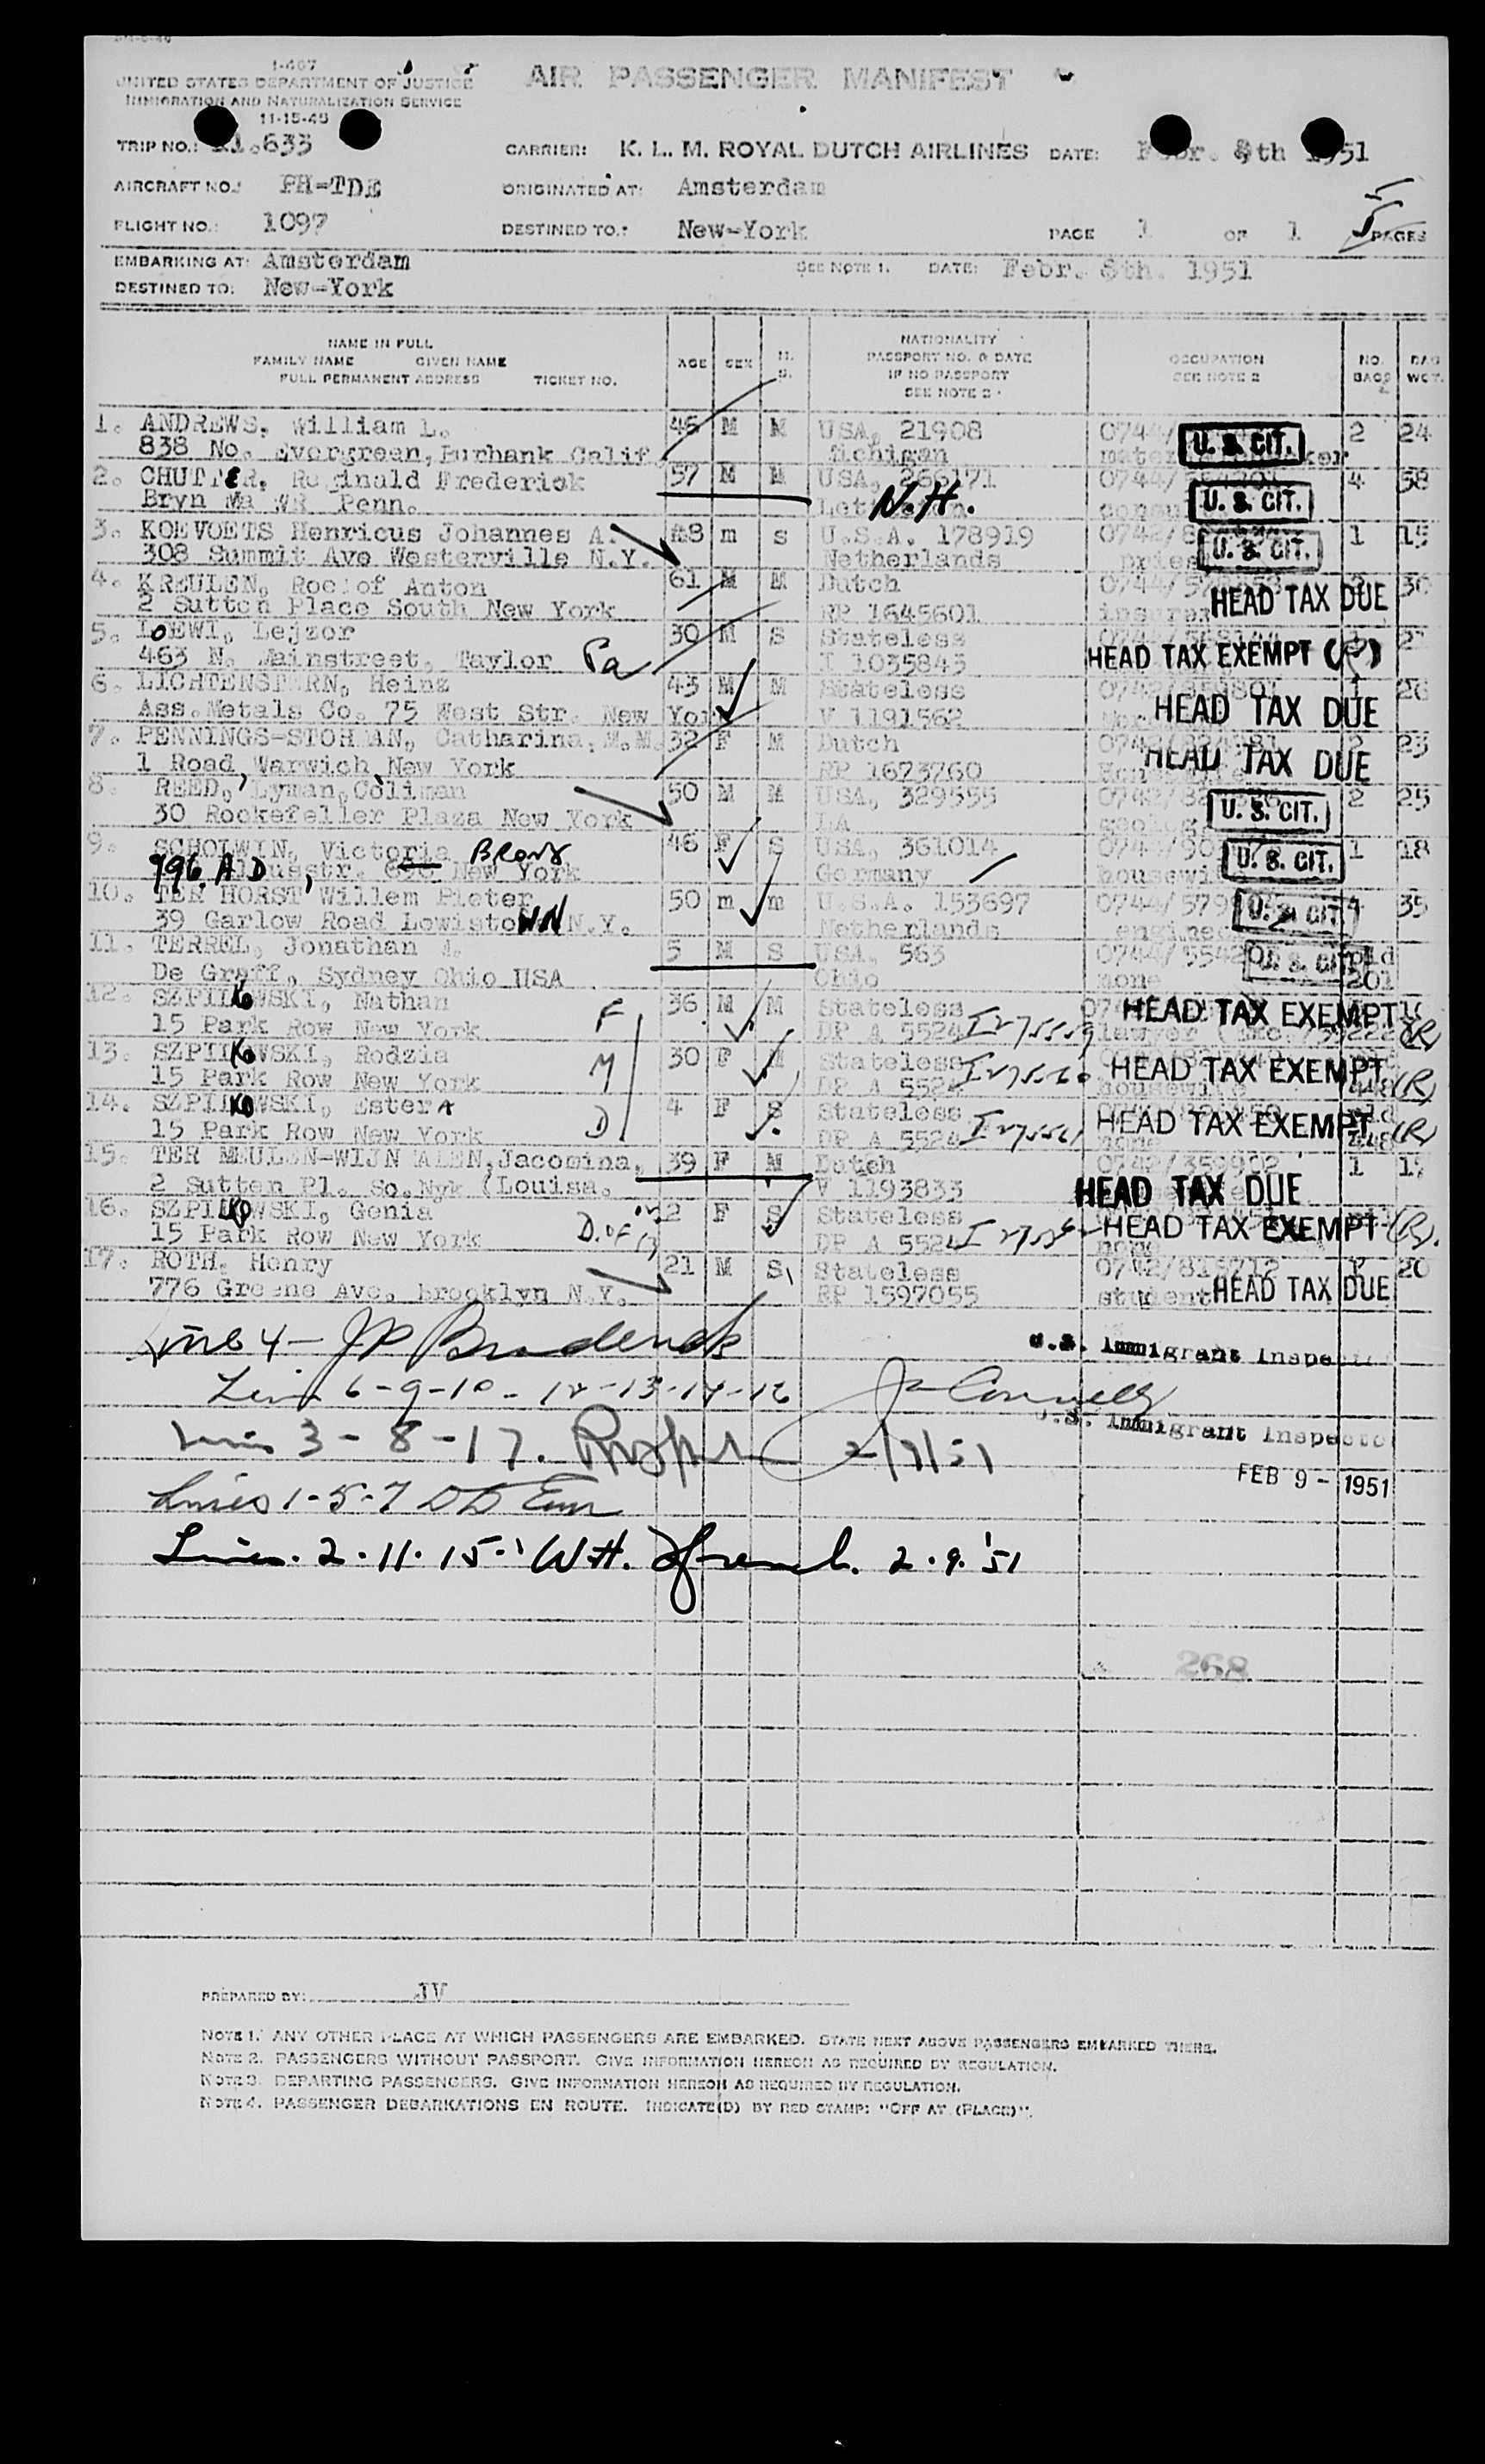 I-467
UNITED STATES DEPARTMENT OF JUSTICE
IMMIGRATION AND NATURALIZATION SERVICE
11-15-45
AIR PASSENGER MANIFEST
TRIP NO.: .633 CARRIER: K. L. M. ROYAL DUTCH AIRLINES DATE: Febr. 8th 1951
AIRCRAFT NO.: PH-TDE ORIGINATED AT: Amsterdam
FLIGHT NO.: 1097 DESTINED TO: New-York PAGE 1 OF 1 5 PAGES
EMBARKING AT: Amsterdam SEE NOTE 1. DATE: Febr. 8th. 1951
DESTINED TO: New-York
NAME IN FULL
FAMILY NAME GIVEN NAME
FULL PERMANENT ADDRESS TICKET NO.
AGE SEX M. S.
NATIONALITY
PASSPORT NO. & DATE
IF NO PASSPORT
SEE NOTE 2
OCCUPATION
SEE NOTE 2
NO. BAGS
BAG WGT.
1. ANDREWS, William L. 46 M M USA, 21908 0744/ U. S. CIT. 2 24
838 No. Evergreen, Burbank Calif. Michigan
2. CHUTTER, Reginald Frederick 57 M M USA, 266171 0744/ U. S. CIT. 4 58
Bryn Ma WR Penn. N.H.
3. KOEVOETS Henricus Johannes A. 48 m s U.S.A. 178919 0742/ U. S. CIT. 1 15
308 Summit Ave Westerville N.Y. Netherlands priest
4. KREULEN, Roelof Anton 61 M M Dutch 0744/ 30
2 Sutton Place South New York RP 1645601 HEAD TAX DUE
5. LOEWI, Lejzor 30 M S Stateless
463 N. Mainstreet, Taylor Pa I 1035843 HEAD TAX EXEMPT (R)
6. LICHTENSTERN, Heinz 43 M M Stateless 0742/ 26
Ass. Metals Co. 75 West Str. New York V 1191562 HEAD TAX DUE
7. PENNINGS-STOHMAN, Catharina, M.M. 32 F M Dutch 0742/ 2 23
1 Road, Warwich, New York RP 1673760 HEAD TAX DUE
8. REED, Lyman, Coliman 50 M M USA, 329555 0742/ U. S. CIT. 2 25
30 Rockefeller Plaza New York LA
9. SCHOLWIN, Victoria Bronx 46 F S USA, 361014 0744/90 U. S. CIT. 1 18
996 AD New York Germany housewi
10. TER HORST, Willem Pieter 50 m m U.S.A. 153697 0744/579 U. S. CIT. 4 35
39 Garlow Road Lewisto WN N.Y. Netherlands engineer
11. TERREL, Jonathan 5 M S USA, 563 0744/5542 U. S. CIT. pld
De Graff, Sydney Ohio USA Ohio none 201
12. SZPILKOWSKI, Nathan F 36 M M Stateless HEAD TAX EXEMPT
15 Park Row New York DP A 5524 lawyer (R)
13. SZPILKOWSKI, Rodzia M 30 F M Stateless HEAD TAX EXEMPT
15 Park Row New York DP A 5524 housewife (R)
14. SZPILKOWSKI, Estera 4 F S Stateless HEAD TAX EXEMPT
15 Park Row New York D DP A 5524 none 448 (R)
15. TER MEULEN-WIJN ALEN, Jacomina, 39 F M Dutch 0742/359902 1
2 Sutton Pl. So. Nyk (Louisa. V 1193833 HEAD TAX DUE
16. SZPILKOWSKI, Genia 2 F S Stateless HEAD TAX EXEMPT (R).
15 Park Row New York D. OF 13 DP A 5524 none
17. ROTH, Henry 21 M S Stateless 0742/ 20
776 Greene Ave, Brooklyn N.Y. RP 1597055 student HEAD TAX DUE
Line 4 - JP Broderick U.S. Immigrant Inspector
Lines 6-9-10-12-13-14-16 J Connelly
U.S. Immigrant Inspector
Lines 3-8-17. 2/9/51
FEB 9 - 1951
Lines 1-5-7
Lines. 2.11.15. W.H. French. 2.9.'51
268
PREPARED BY: JV
NOTE 1. ANY OTHER PLACE AT WHICH PASSENGERS ARE EMBARKED. STATE NEXT ABOVE PASSENGERS EMBARKED THERE.
NOTE 2. PASSENGERS WITHOUT PASSPORT. GIVE INFORMATION HEREON AS REQUIRED BY REGULATION.
NOTE 3. DEPARTING PASSENGERS. GIVE INFORMATION HEREON AS REQUIRED BY REGULATION.
NOTE 4. PASSENGER DEBARKATIONS EN ROUTE. INDICATE(D) BY RED STAMP: "OFF AT (PLACE)".